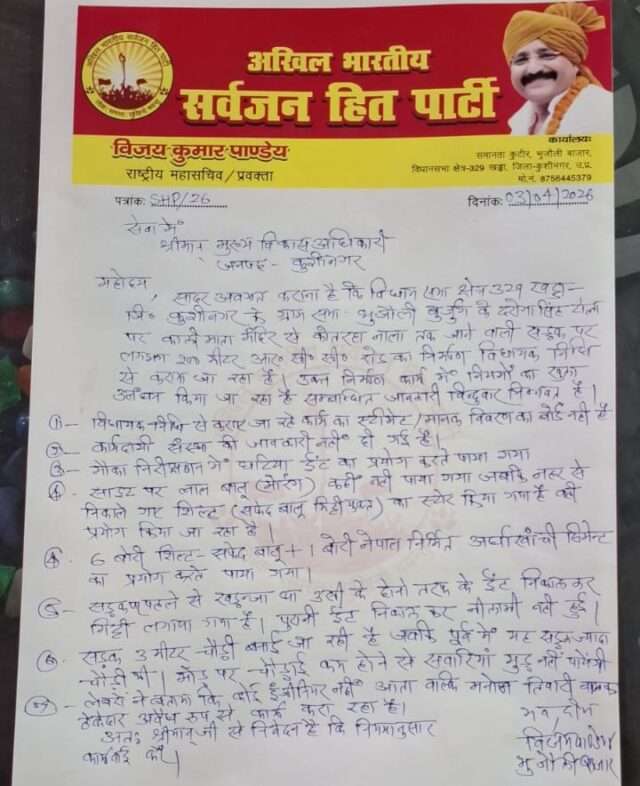 अखिल भारतीय सर्वजन हित पार्टी
अखिल भारतीय
सर्वजन हित पार्टी
विजय कुमार पाण्डेय
राष्ट्रीय महासचिव / प्रवक्ता
कार्यालयः
समानता कुटीर, भुजौली बाजार,
विधानसभा क्षेत्र-329 खड्डा, जिला-कुशीनगर, उ.प्र.
मो.नं. 8756445379
पत्रांकः SHP/26
दिनांकः 03/04/2026
सेवा में
श्रीमान् मुख्य विकास अधिकारी
जनपद - कुशीनगर
महोदय,
सादर अवगत कराना है कि विधान सभा क्षेत्र 329 खड्डा-
जि० कुशीनगर के ग्राम सभा- भुजौली बुजुर्ग के दरोगा सिंह टोला
पर काली माता मंदिर से कोतरहा नाला तक जाने वाली सड़क पर
लगभग 200 मीटर आर० सी० सी० रोड का निर्माण विधायक निधि
से कराया जा रहा है। उक्त निर्माण कार्य में नियमों का खुला
उलंघन किया जा रहा है सम्बन्धित जानकारी विन्दुवार निम्नवत है।
1- विधायक निधि से कराए जा रहे कार्य का स्टीमेट/मानक विवरण का बोर्ड नहीं है
2- कार्यदायी संस्था की जानकारी नहीं दी गई है।
3- मौका निरीक्षण में घटिया ईंट का प्रयोग करते पाया गया
4- साइट पर लाल बालू (मोरंग) कहीं नहीं पाया गया जबकि नहर से
निकाले गए शिल्ट (सफेद बालू मिट्टी युक्त) का स्टोर किया गया है वही
प्रयोग किया जा रहा है।
6 बोरी शिल्ट- सफेद बालू + 1 बोरी नेपाल निर्मित अर्घाखांची सिमेन्ट
का प्रयोग करते पाया गया।
5- सड़क पहले से खड़न्जा था उसी के दोनो तरफ के ईंट निकाल कर
मिट्टी लगाया गया है। पुरानी ईंट निकाल कर नीलामी नहीं हुई।
6- सड़क 3 मीटर चौड़ी बनाई जा रही है जबकि पूर्व में यह सड़क ज्यादा
चौड़ी थी। मोड़ पर चौड़ाई कम होने से सवारियां मुड़ नहीं पायेंगी
7- लेबरों ने बताया कि कोई इंजीनियर नहीं आता बल्कि मनोज तिवारी नामक
ठेकेदार अवैध रूप से कार्य करा रहा है।
अतः श्रीमान् जी से निवेदन है कि नियमानुसार
कार्यवाई करें।
भवदीय
विजय पाण्डेय
भुजौली बाजार